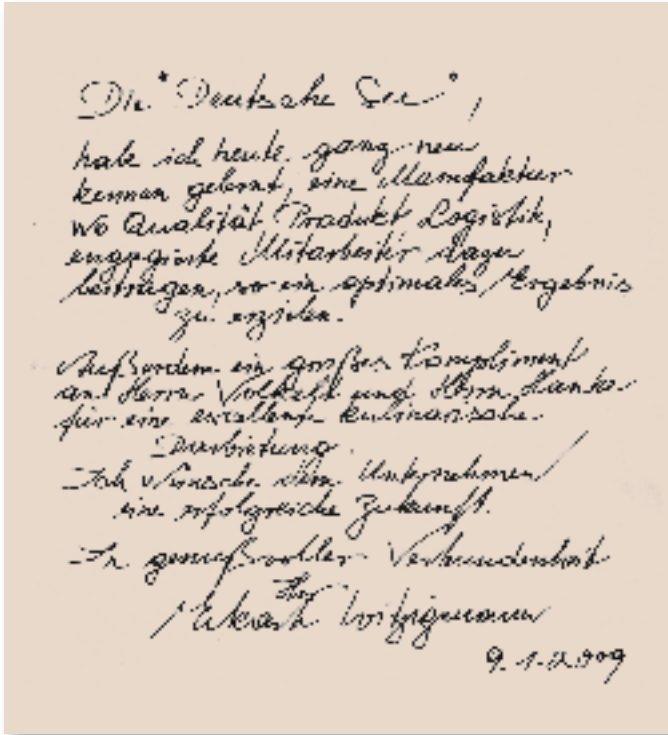 Die "Deutsche See",
habe ich heute ganz neu
kennen gelernt, eine Manufaktur
wo Qualität Produkt Logistik,
engagierte Mitarbeiter dazu
beitragen, so ein optimales Ergebnis
zu erzielen.
Außerdem ein großes Kompliment
an Herrn und Herrn
für eine exzellente kulinarische
Darbietung.
Ich wünsche dem Unternehmen
eine erfolgreiche Zukunft.
In genußvoller Verbundenheit
Ihr
Eckart Witzigmann
9.1.2009